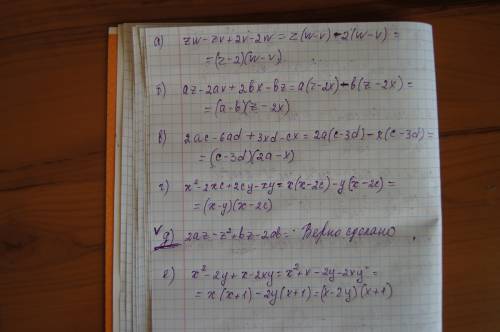 а) zw - zv + 2v - 2w = z(w-v) - 2(w-v) =
= (z-2)(w-v)
б) az - 2ax + 2bx - bz = a(z-2x) - b(z-2x) =
= (a-b)(z-2x)
в) 2ac - 6ad + 3xd - cx = 2a(c-3d) - x(c-3d) =
= (c-3d)(2a-x)
г) x² - 2xc + 2cy - xy = x(x-2c) - y(x-2c) =
= (x-y)(x-2c)
√ д) 2az - z² + bz - 2ab = Верно сделано
е) x² - 2y + x - 2xy = x² + x - 2y - 2xy =
= x(x+1) - 2y(x+1) = (x-2y)(x+1)